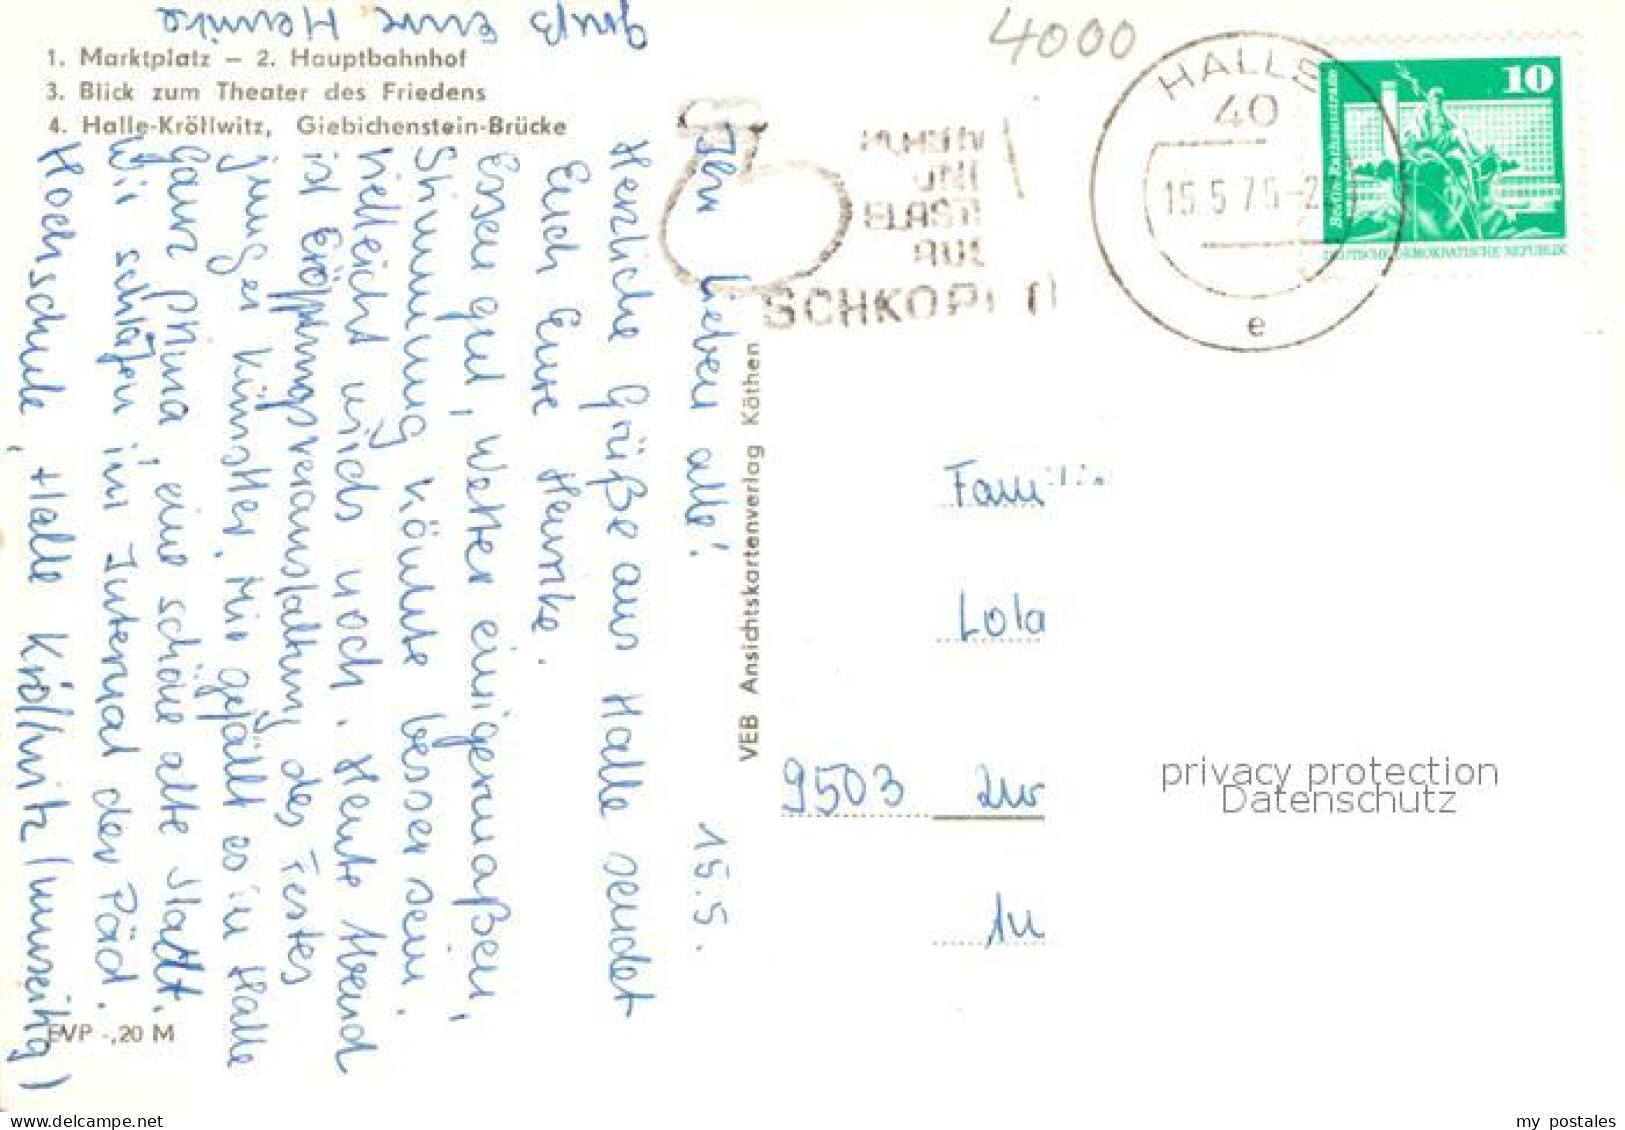 gruß eure Henrike
1. Marktplatz – 2. Hauptbahnhof
3. Blick zum Theater des Friedens
4. Halle-Kröllwitz, Giebichenstein-Brücke
15.5.
Ihr Lieben alle!
Herzliche Grüße aus Halle sendet
Euch Eure Henrike.
Essen gut, Wetter einigermaßen,
Stimmung könnte besser sein.
Vielleicht wirds noch. Heute Abend
ist Eröffnungsveranstaltung des Festes
junger Künstler. Mir gefällt es in Halle
ganz prima, eine schöne alte Stadt.
Wir schlafen im Internat der Päd.
Hochschule, Halle Kröllwitz
EVP -,20 M
VEB Ansichtskartenverlag Köthen
4000
HALLE
40
15.5.75-2
e
PLASTE
UND
ELAST
AUS
SCHKOP
10
Berlin Rathausstraße
DEUTSCHE DEMOKRATISCHE REPUBLIK
Famili
Lola
9503 Zw
In
privacy protection
Datenschutz
delcampe.net
my_postales